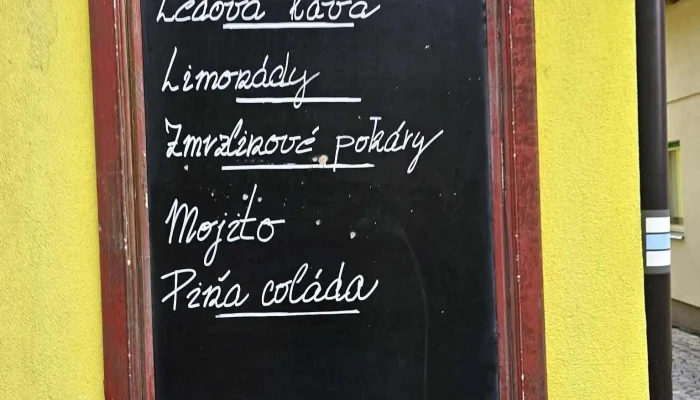 Ledová káva
Limonády
Zmrzlinové poháry
Mojito
Piňa coláda